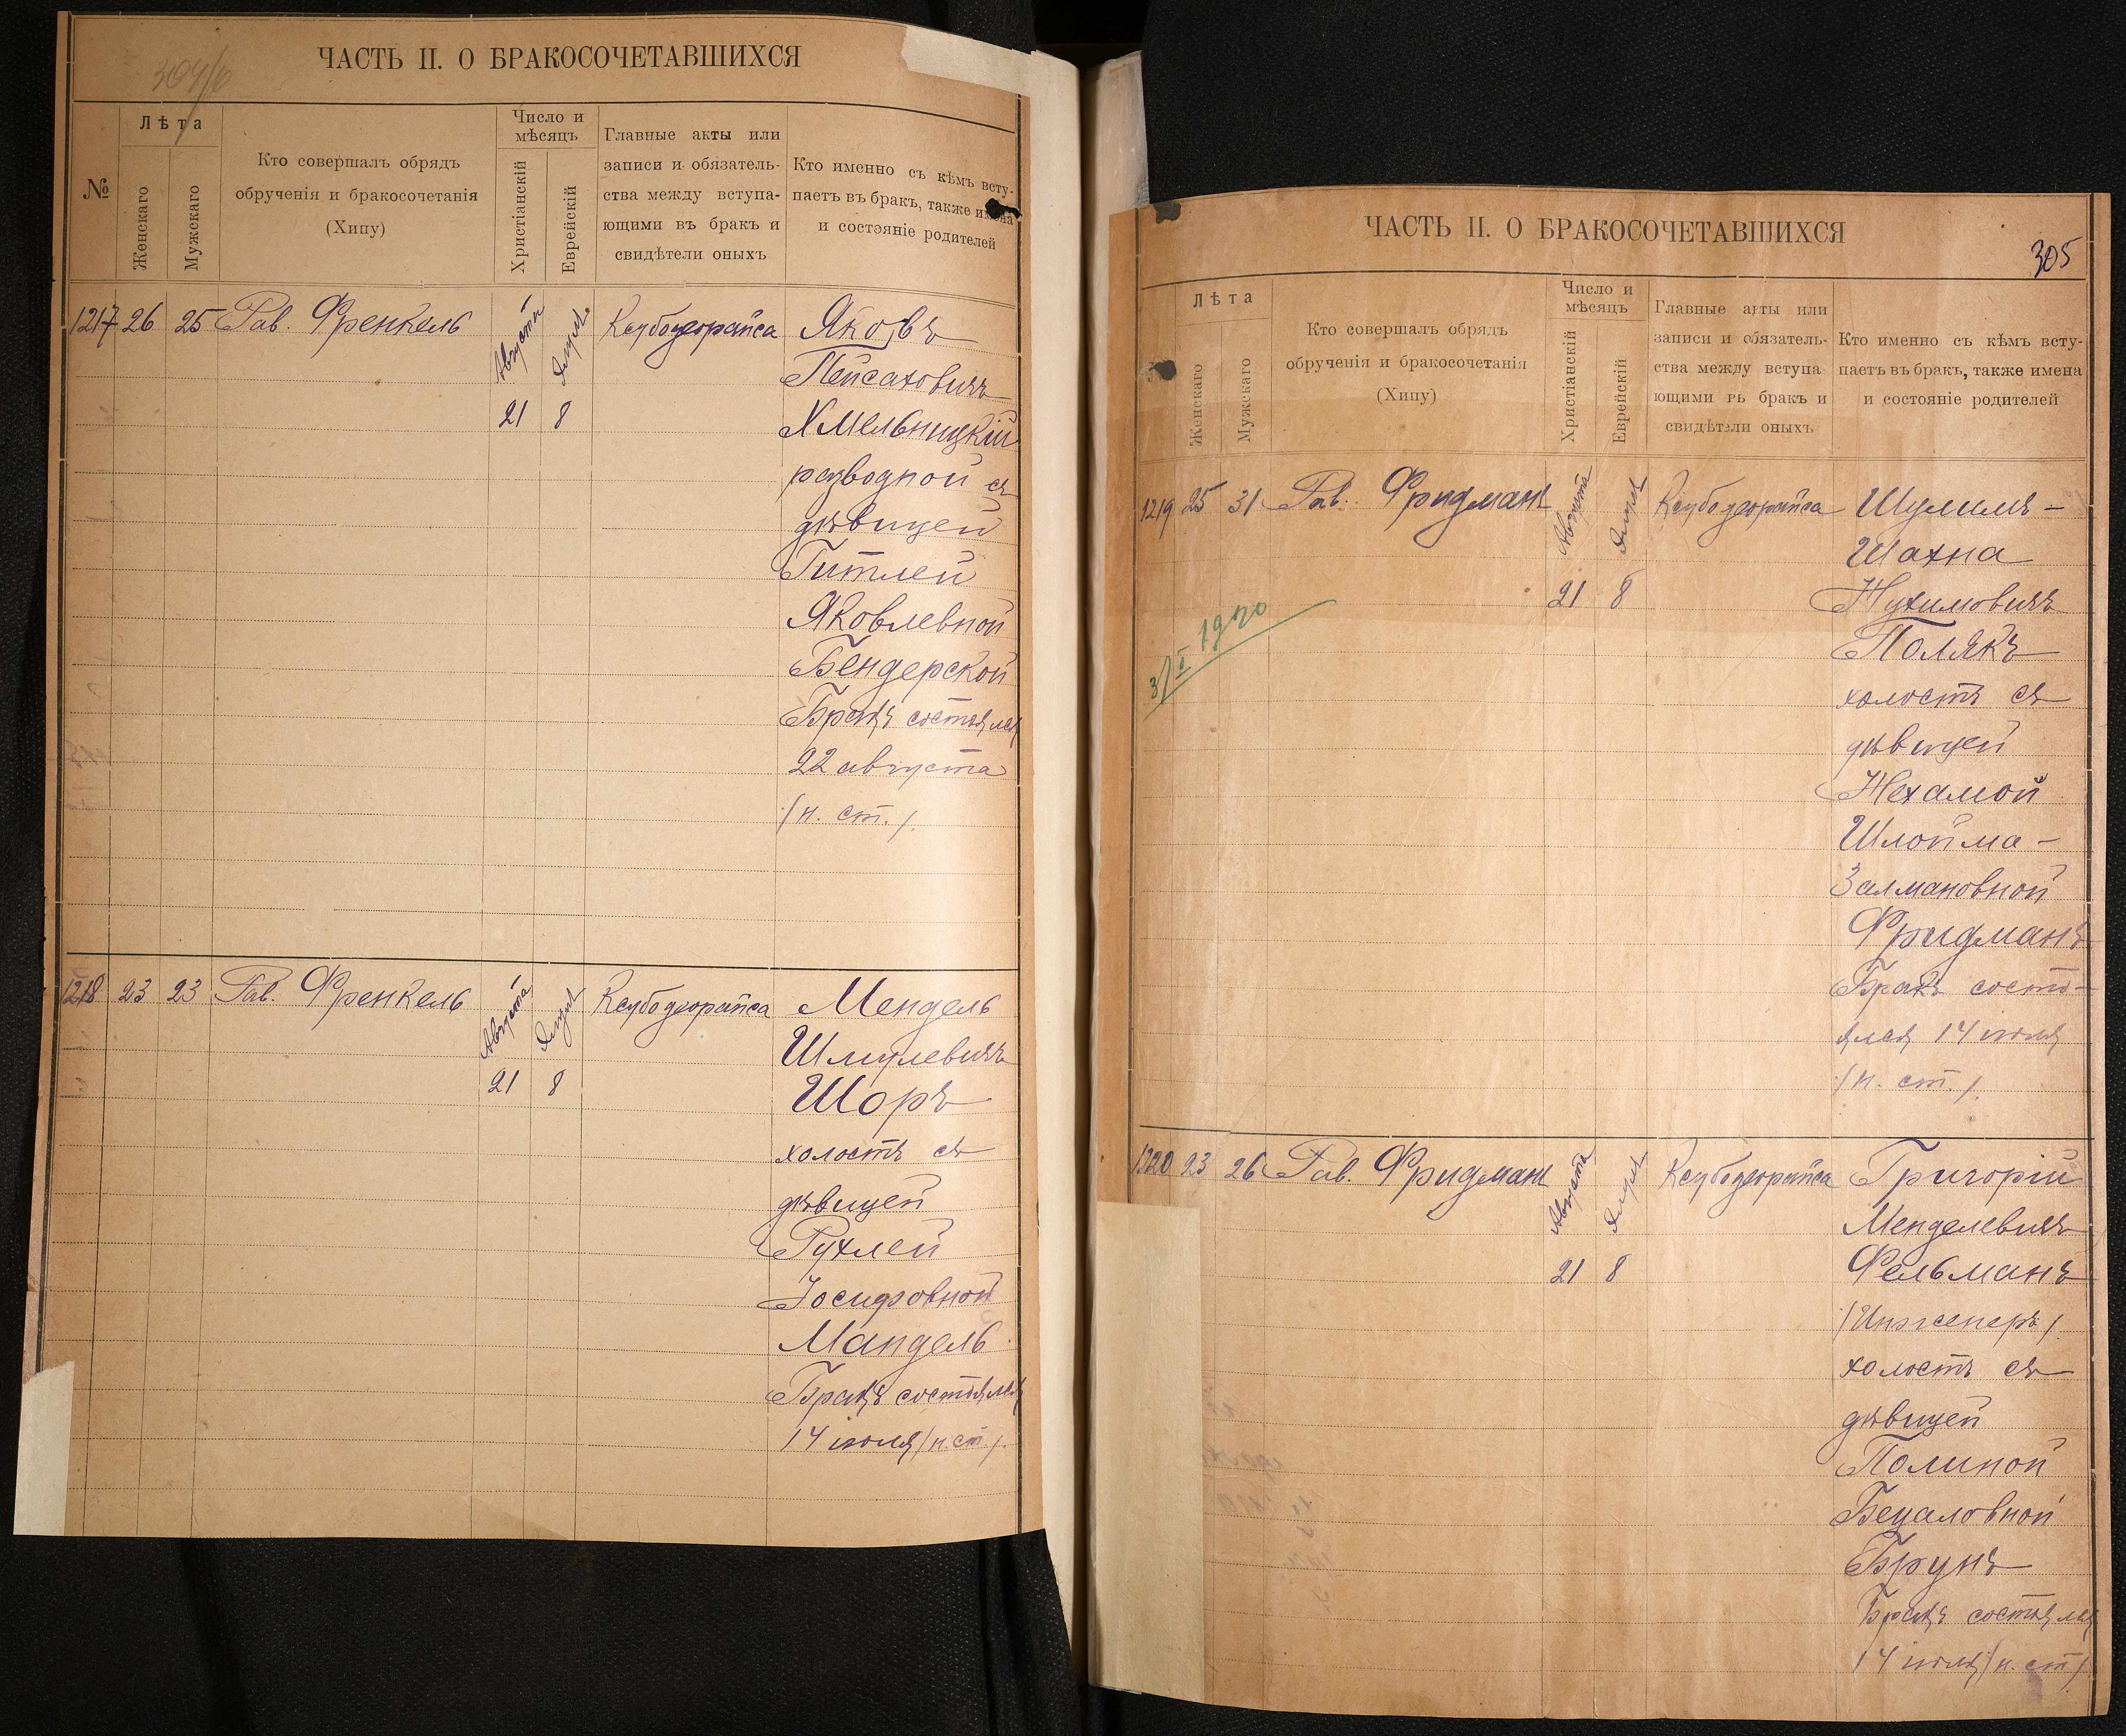 304/0
ЧАСТЬ II. О БРАКОСОЧЕТАВШИХСЯ
№
Лѣта
Женскаго
Мужскаго
Кто совершалъ обрядъ
обрученія и бракосочетанія
(Хипу)
Число и
мѣсяцъ
Христіанскій
Еврейскій
Главные акты или
записи и обязатель-
ства между вступа-
ющими въ бракъ и
свидѣтели оныхъ
Кто именно съ кѣмъ всту-
паетъ въ бракъ, также имена
и состояніе родителей
1217 26 25 Рав. Френкель
Августа Элулъ
21 8
Ксубодеорайса
Яковъ
Пейсаховичъ
Хмельницкій
разводной съ
дѣвицей
Гитлей
Яковлевной
Бендерской
Бракъ состоялся
22 августа
(н. ст.).
1218 23 23 Рав. Френкель
Августа Элулъ
21 8
Ксубодеорайса
Мендель
Шмулевичъ
Шоръ
холостъ съ
дѣвицей
Рухлей
Іосифовной
Мандель
Бракъ состоялся
14 июля (н. ст.).
ЧАСТЬ II. О БРАКОСОЧЕТАВШИХСЯ
305
Лѣта
Женскаго
Мужскаго
Кто совершалъ обрядъ
обрученія и бракосочетанія
(Хипу)
Число и
мѣсяцъ
Христіанскій
Еврейскій
Главные акты или
записи и обязатель-
ства между вступа
ющими въ бракъ и
свидѣтели оныхъ
Кто именно съ кѣмъ всту-
паетъ въ бракъ, также имена
и состояніе родителей
1219 25 31 Рав. Фридманъ
Августа Элулъ
21 8
Ксубодеорайса
Шулимъ-
Шахна
Нухимовичъ
Полякъ
холостъ съ
дѣвицей
Нехамой
Шлойма-
Залмановной
Фридманъ
Бракъ состо-
ялся 14 июля
(н. ст.).
3/I 1920
1220 23 26 Рав. Фридманъ
Августа Элулъ
21 8
Ксубодеорайса
Григорій
Менделевичъ
Фельманъ
(Инженеръ).
холостъ съ
дѣвицей
Полиной
Бецаловной
Брунъ
Бракъ состоялся
14 июля (н. ст.)